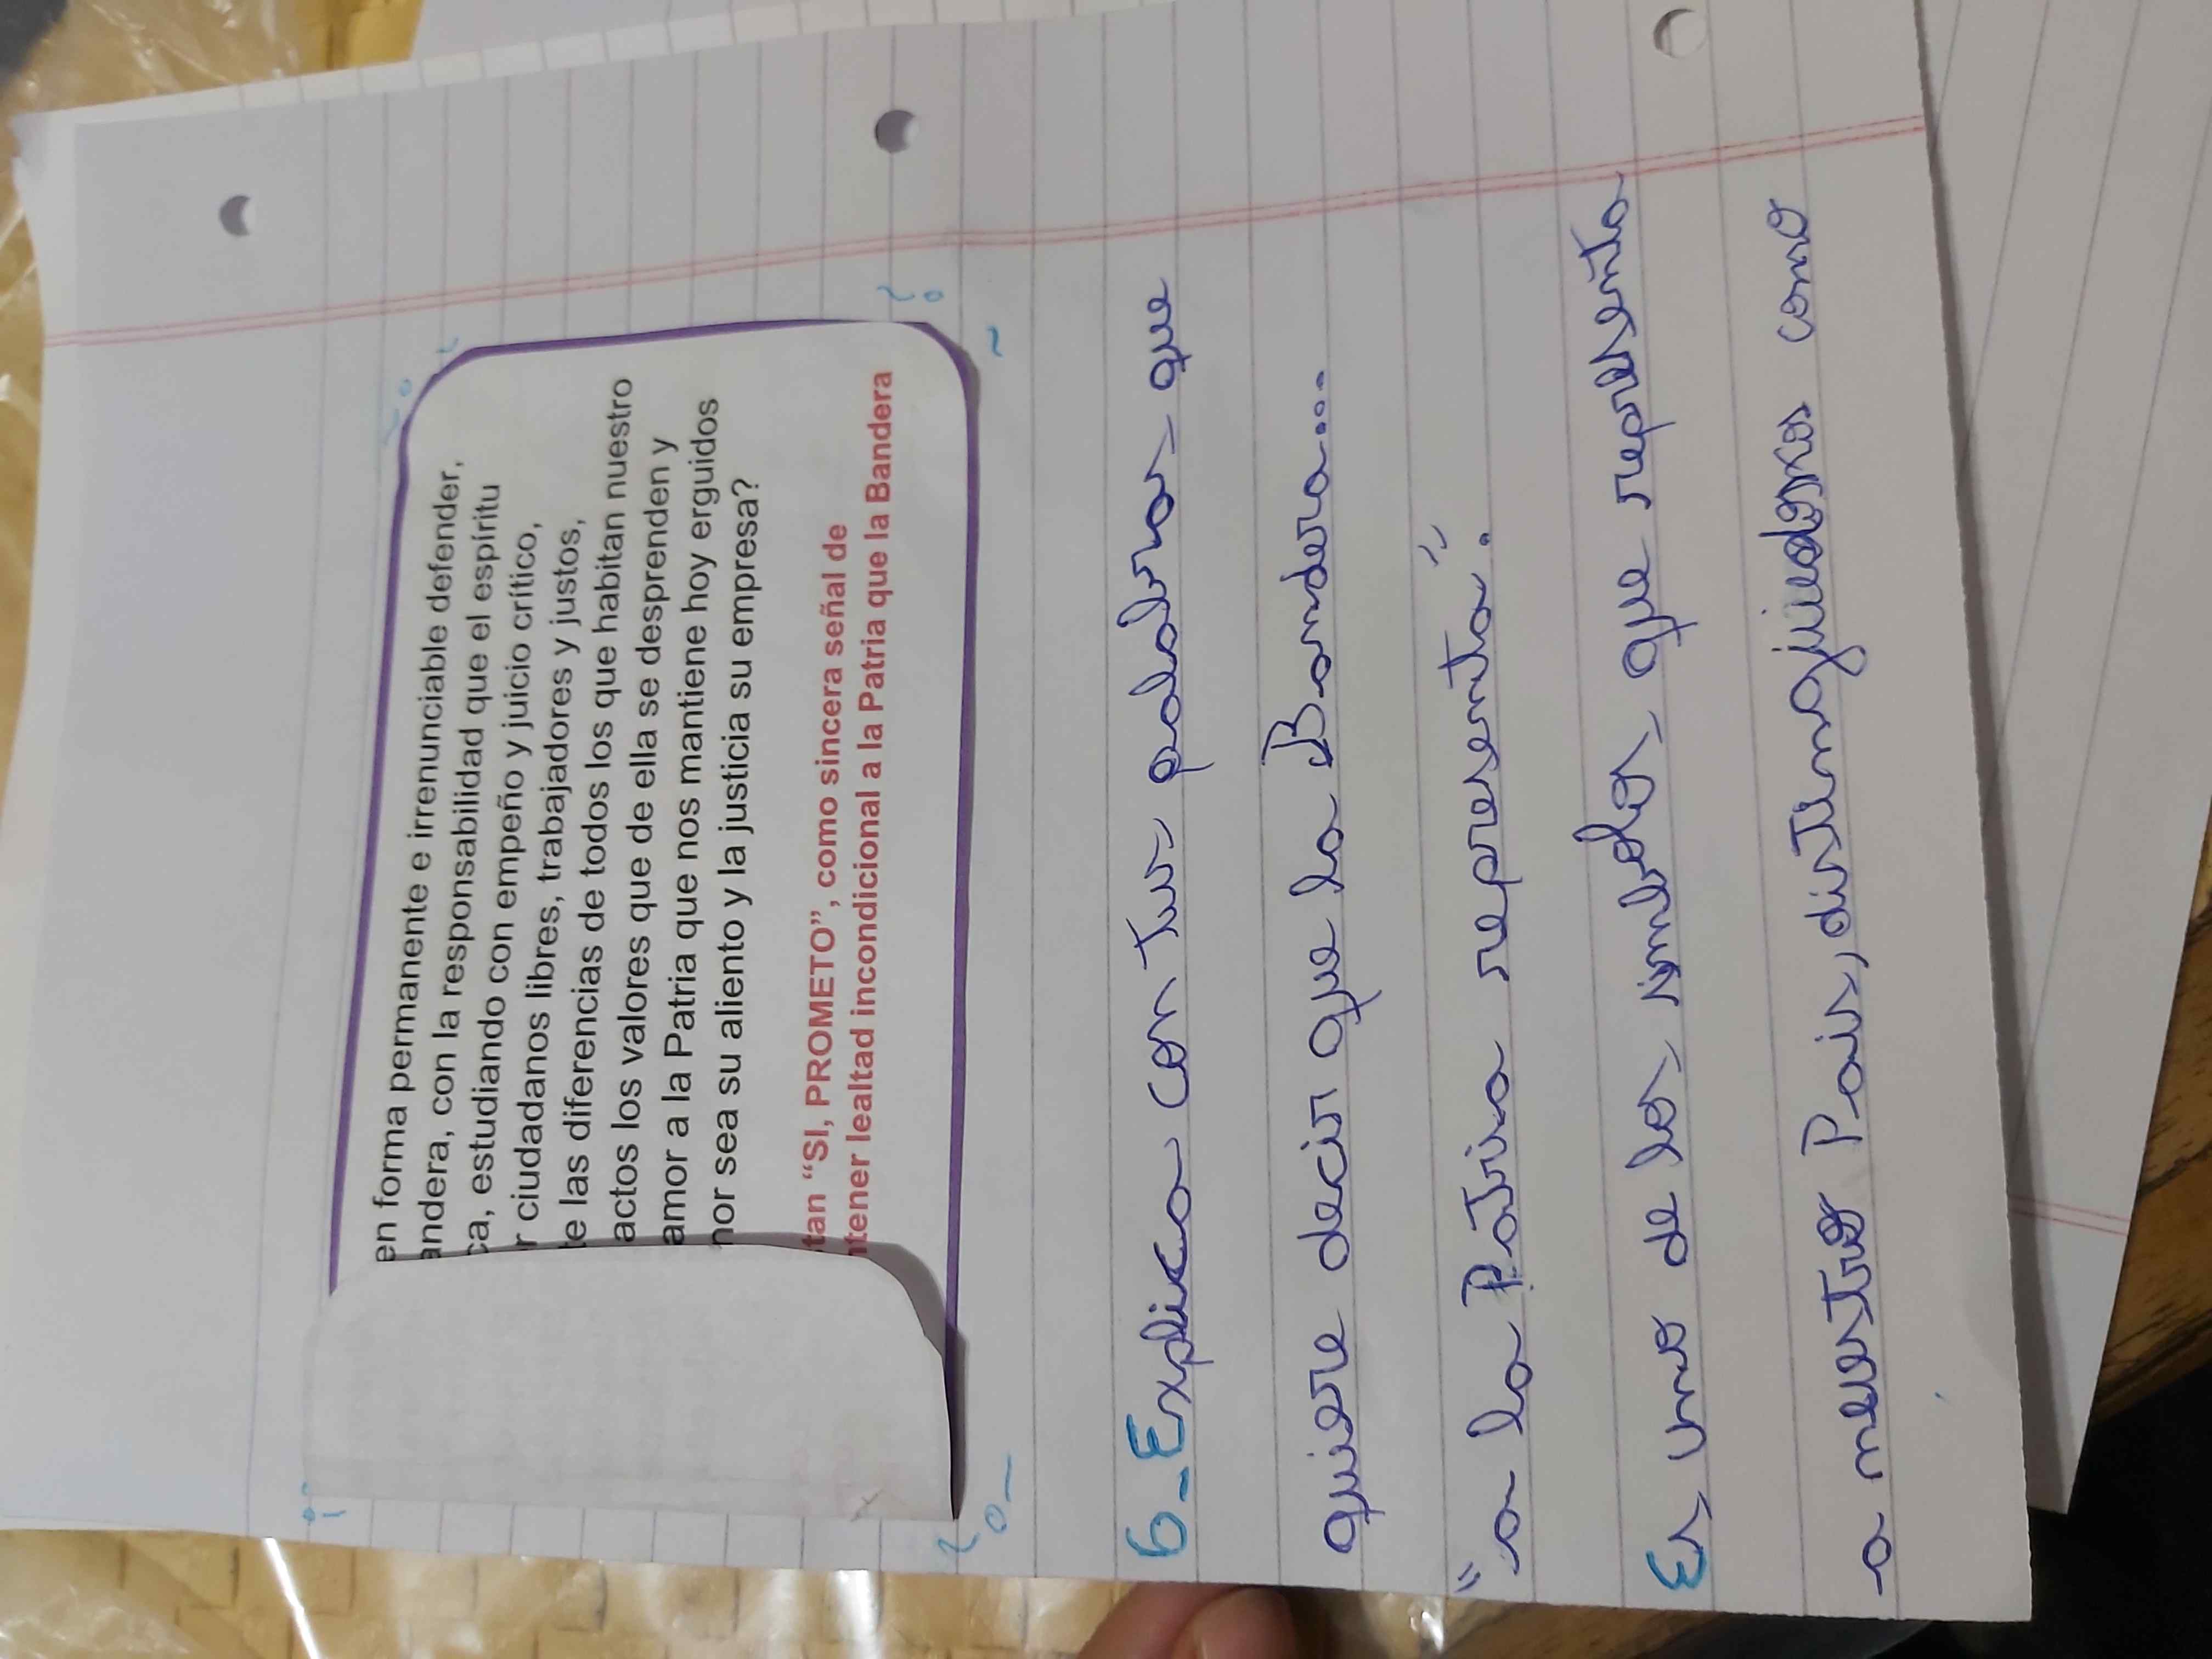 en forma permanente e irrenunciable defender,
andera, con la responsabilidad que el espíritu
ca, estudiando con empeño y juicio crítico,
r ciudadanos libres, trabajadores y justos,
te las diferencias de todos los que habitan nuestro
actos los valores que de ella se desprenden y
amor a la Patria que nos mantiene hoy erguidos
nor sea su aliento y la justicia su empresa?
tan “SI, PROMETO”, como sincera señal de
ntener lealtad incondicional a la Patria que la Bandera
6_Explica con tus palabras que
quiere decir que la Bandera...
"a la Patria representa".
Es uno de los simbolos que representa
a nuestro Pais, como